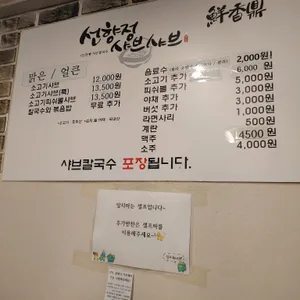 鮮香鼎
선향정
샤브샤브
맑은 / 얼큰
소고기샤브 12,000원
소고기샤브(특) 13,500원
소고기피쉬볼샤브 13,500원
칼국수와 볶음밥 무료 추가
음료수 2,000원
소고기 추가 6,000 원
피쉬볼 추가 5,000원
야채 추가 3,000원
버섯 추가 3,000원
라면사리 1,000원
계란 500원
맥주 4500원
소주 4,000원
샤브칼국수 포장됩니다.
앞치마는 셀프입니다~
추가반찬은 셀프바를
이용해주세요~